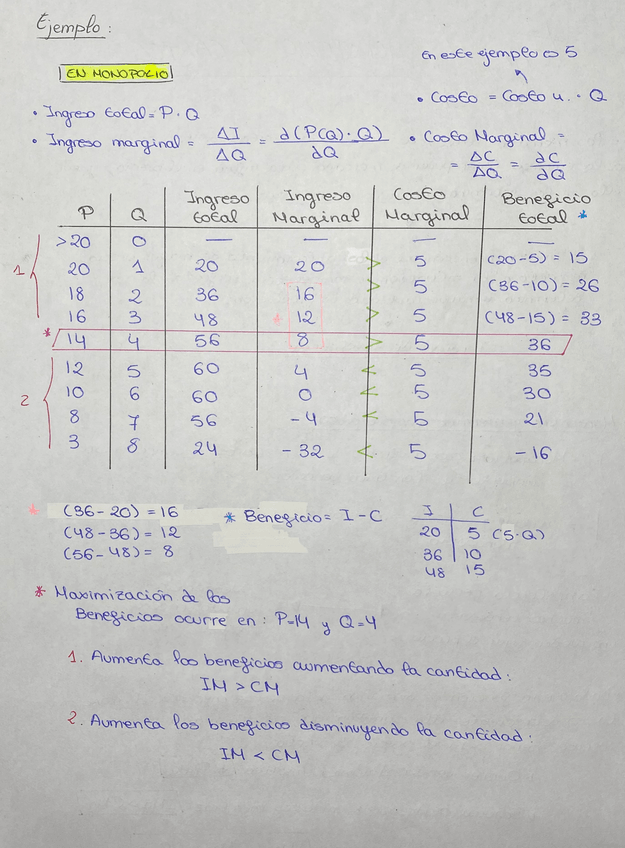 Ejemplo:
EN MONOPOLIO
En este ejemplo es 5
• Costo = Costo u. · Q
• Ingreso total = P · Q
• Ingreso marginal = ΔI / ΔQ = d(P(Q) · Q) / dQ
• Costo Marginal =
= ΔC / ΔQ = dC / dQ
P | Q | Ingreso total | Ingreso Marginal | Costo Marginal | Beneficio total *
>20 | 0 | — | — | — | —
1 20 | 1 | 20 | 20 > 5 | (20-5) = 15
18 | 2 | 36 | 16 > 5 | (36-10) = 26
16 | 3 | 48 | * 12 > 5 | (48-15) = 33
* 14 | 4 | 56 | 8 > 5 | 36
12 | 5 | 60 | 4 < 5 | 35
2 10 | 6 | 60 | 0 < 5 | 30
8 | 7 | 56 | -4 < 5 | 21
3 | 8 | 24 | -32 < 5 | -16
* (36-20) = 16
(48-36) = 12
(56-48) = 8
* Beneficio = I - C
I | C
20 | 5 (5·Q)
36 | 10
48 | 15
* Maximización de los
Beneficios ocurre en: P=14 y Q=4
1. Aumenta los beneficios aumentando la cantidad:
IM > CM
2. Aumenta los beneficios disminuyendo la cantidad:
IM < CM